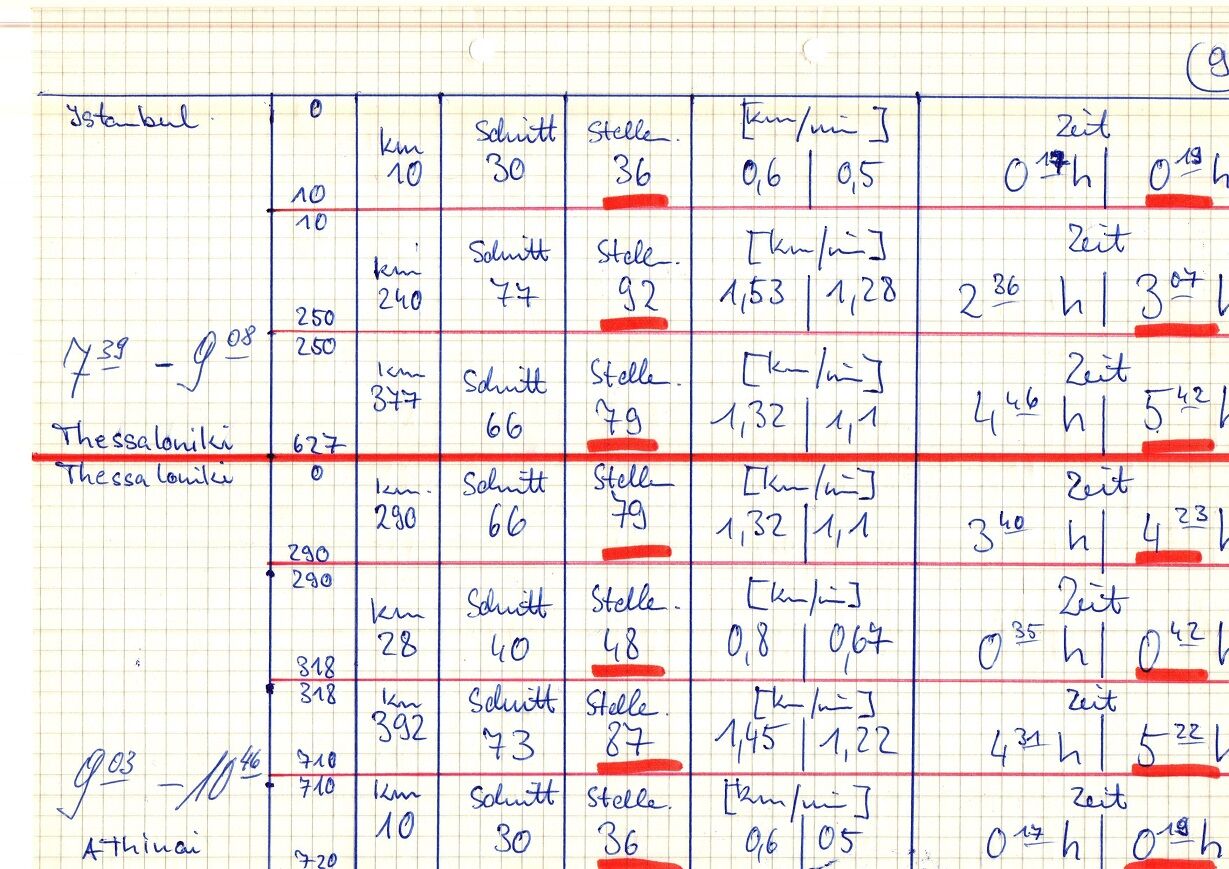 (9
Istanbul. 0 km Schnitt Stelle. [km/min] Zeit
10 10 30 36 0,6 | 0,5 0 17 h | 0 19 h
10 km Schnitt Stelle. [km/min] Zeit
250 240 77 92 1,53 | 1,28 2 36 h | 3 07 h
7 39 - 9 08
250 km Schnitt Stelle. [km/min] Zeit
Thessaloniki 627 377 66 79 1,32 | 1,1 4 46 h | 5 42 h
Thessaloniki 0 km. Schnitt Stelle [km/min] Zeit
290 290 66 79 1,32 | 1,1 3 40 h | 4 23 h
290 km Schnitt Stelle. [km/min] Zeit
318 28 40 48 0,8 | 0,67 0 35 h | 0 42 h
318 km Schnitt Stelle. [km/min] Zeit
710 392 73 87 1,45 | 1,22 4 31 h | 5 22 h
9 03 - 10 46
710 km Schnitt Stelle. [km/min] Zeit
Athinai 720 10 30 36 0,6 | 05 0 17 h | 0 19 h